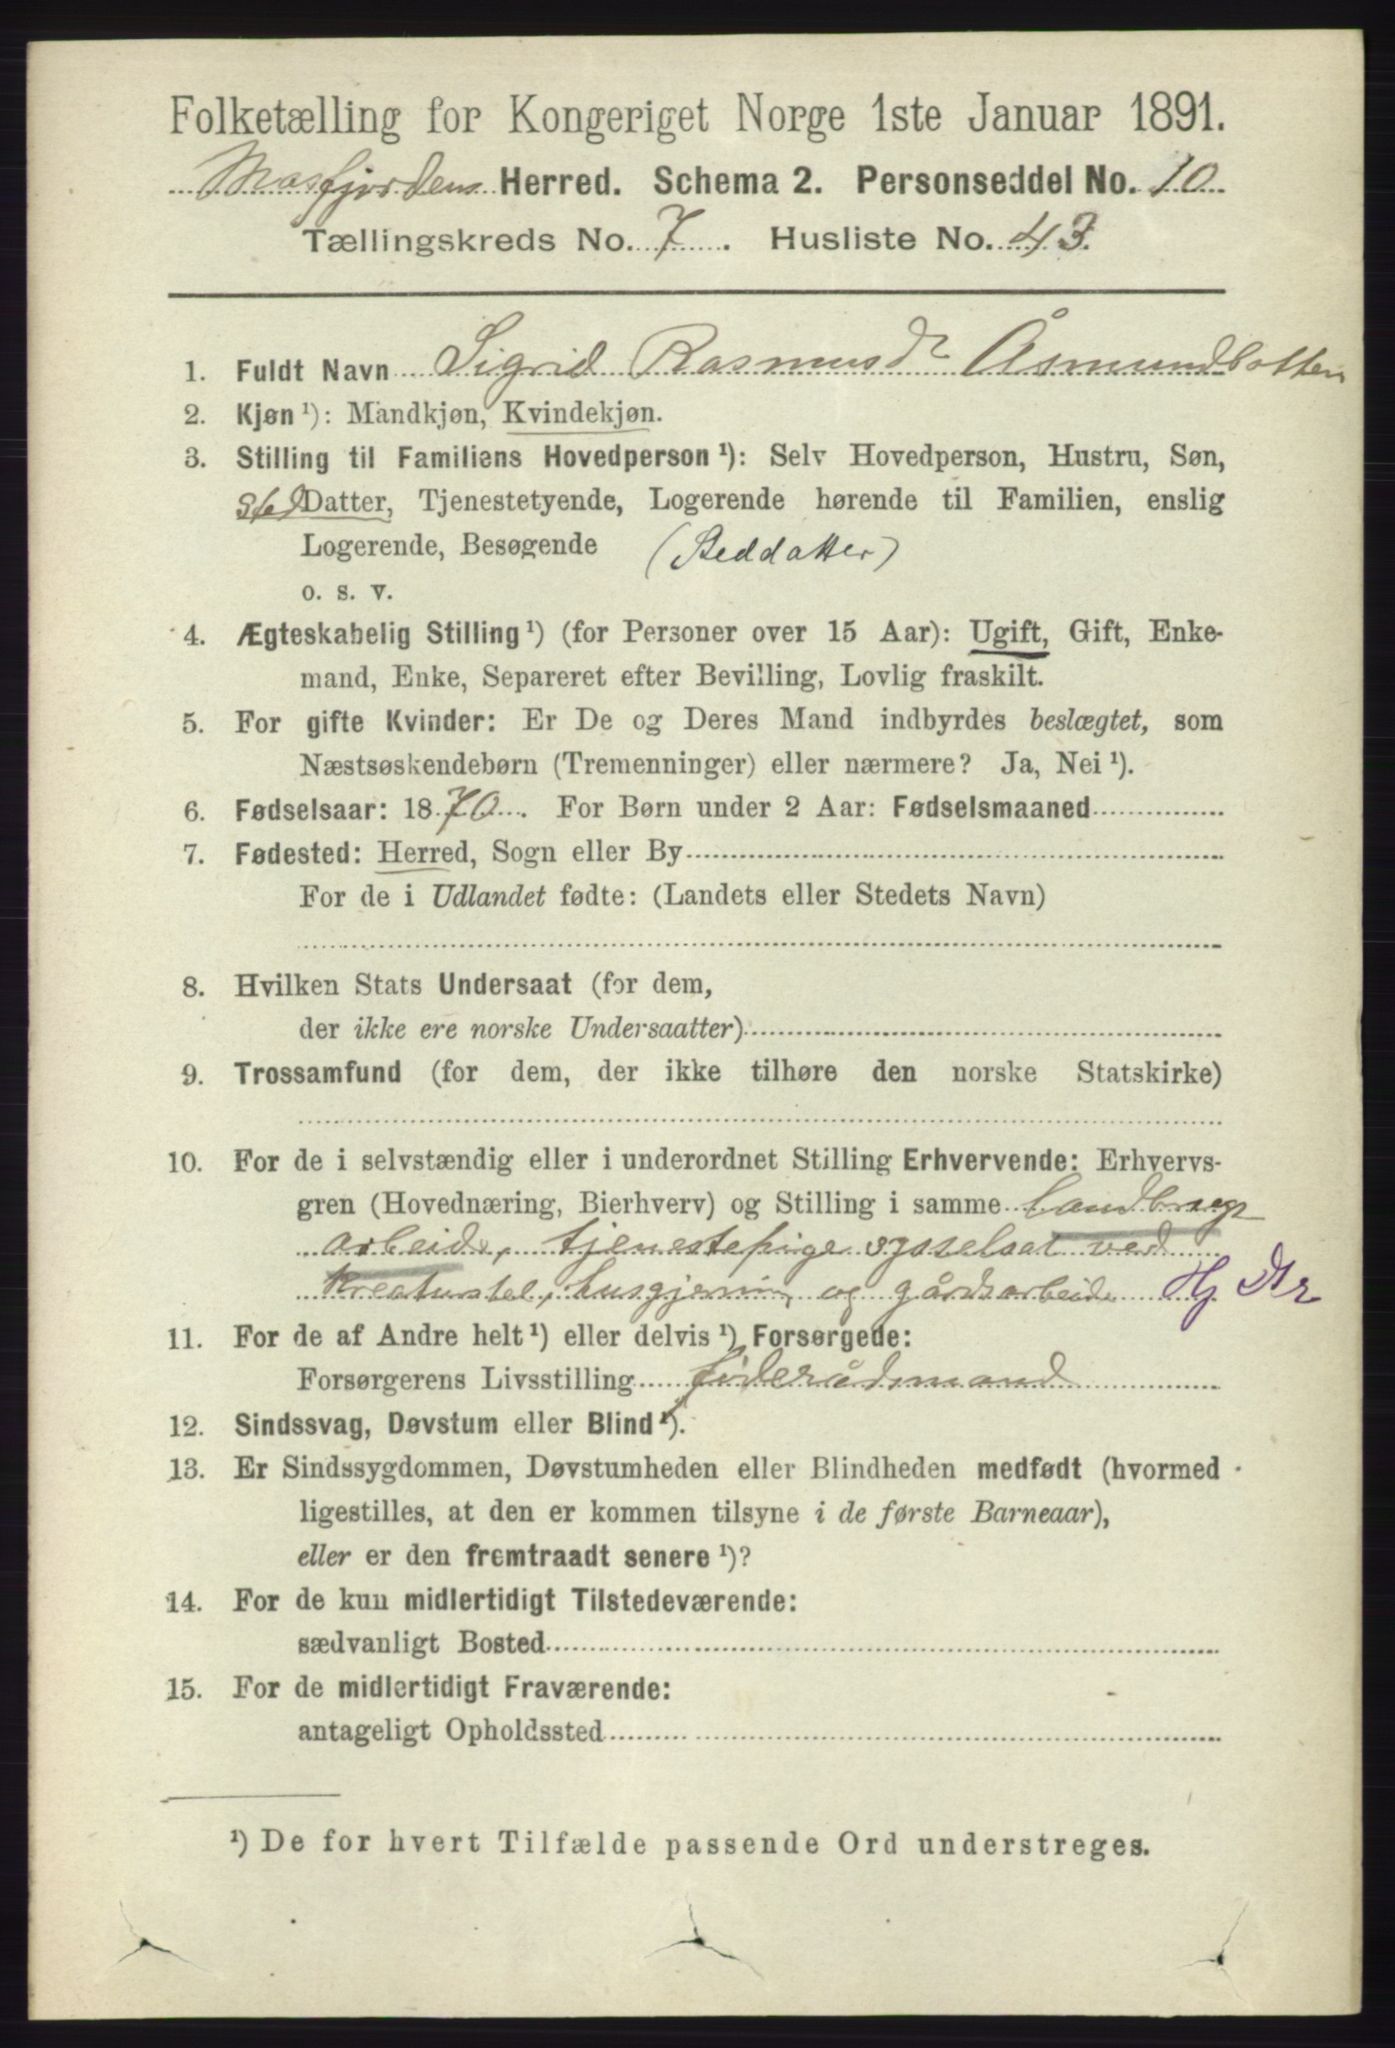 Folketælling for Kongeriget Norge 1ste Januar 1891.
Masfjordens Herred. Schema 2. Personseddel No. 10
Tællingskreds No. 7. Husliste No. 43.
1. Fuldt Navn Sigrid Rasmusdr Åsmundbotten
2. Kjøn ¹): Mandkjøn, Kvindekjøn.
3. Stilling til Familiens Hovedperson ¹): Selv Hovedperson, Hustru, Søn,
sted Datter, Tjenestetyende, Logerende hørende til Familien, enslig
Logerende, Besøgende (Steddatter)
o. s. v.
4. Ægteskabelig Stilling ¹) (for Personer over 15 Aar): Ugift, Gift, Enke-
mand, Enke, Separeret efter Bevilling, Lovlig fraskilt.
5. For gifte Kvinder: Er De og Deres Mand indbyrdes beslægtet, som
Næstsøskendebørn (Tremenninger) eller nærmere? Ja, Nei ¹).
6. Fødselsaar: 1870. For Børn under 2 Aar: Fødselsmaaned
7. Fødested: Herred, Sogn eller By
For de i Udlandet fødte: (Landets eller Stedets Navn)
8. Hvilken Stats Undersaat (for dem,
der ikke ere norske Undersaatter)
9. Trossamfund (for dem, der ikke tilhøre den norske Statskirke)
10. For de i selvstændig eller i underordnet Stilling Erhvervende: Erhvervs-
gren (Hovednæring, Bierhverv) og Stilling i samme Landbrugs
arbeide, tjenestepige sysselsat ved
Kreaturstel, husgjerning og gårdsarbeide Hj Dtr
11. For de af Andre helt ¹) eller delvis ¹) Forsørgede:
Forsørgerens Livsstilling föderådsmand
12. Sindssvag, Døvstum eller Blind ¹).
13. Er Sindssygdommen, Døvstumheden eller Blindheden medfødt (hvormed
ligestilles, at den er kommen tilsyne i de første Barneaar),
eller er den fremtraadt senere ¹)?
14. For de kun midlertidigt Tilstedeværende:
sædvanligt Bosted
15. For de midlertidigt Fraværende:
antageligt Opholdssted
¹) De for hvert Tilfælde passende Ord understreges.